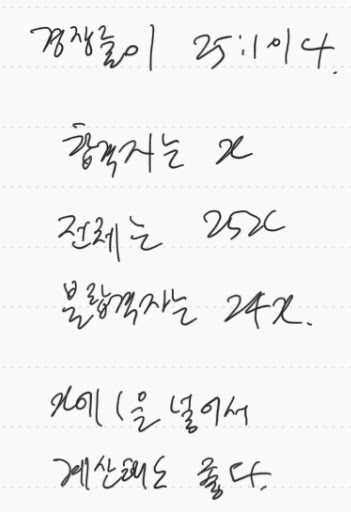 경쟁률이 25:1이다.
합격자는 x
전체는 25x
불합격자는 24x.
x에 1을 넣어서
계산해도 좋다.